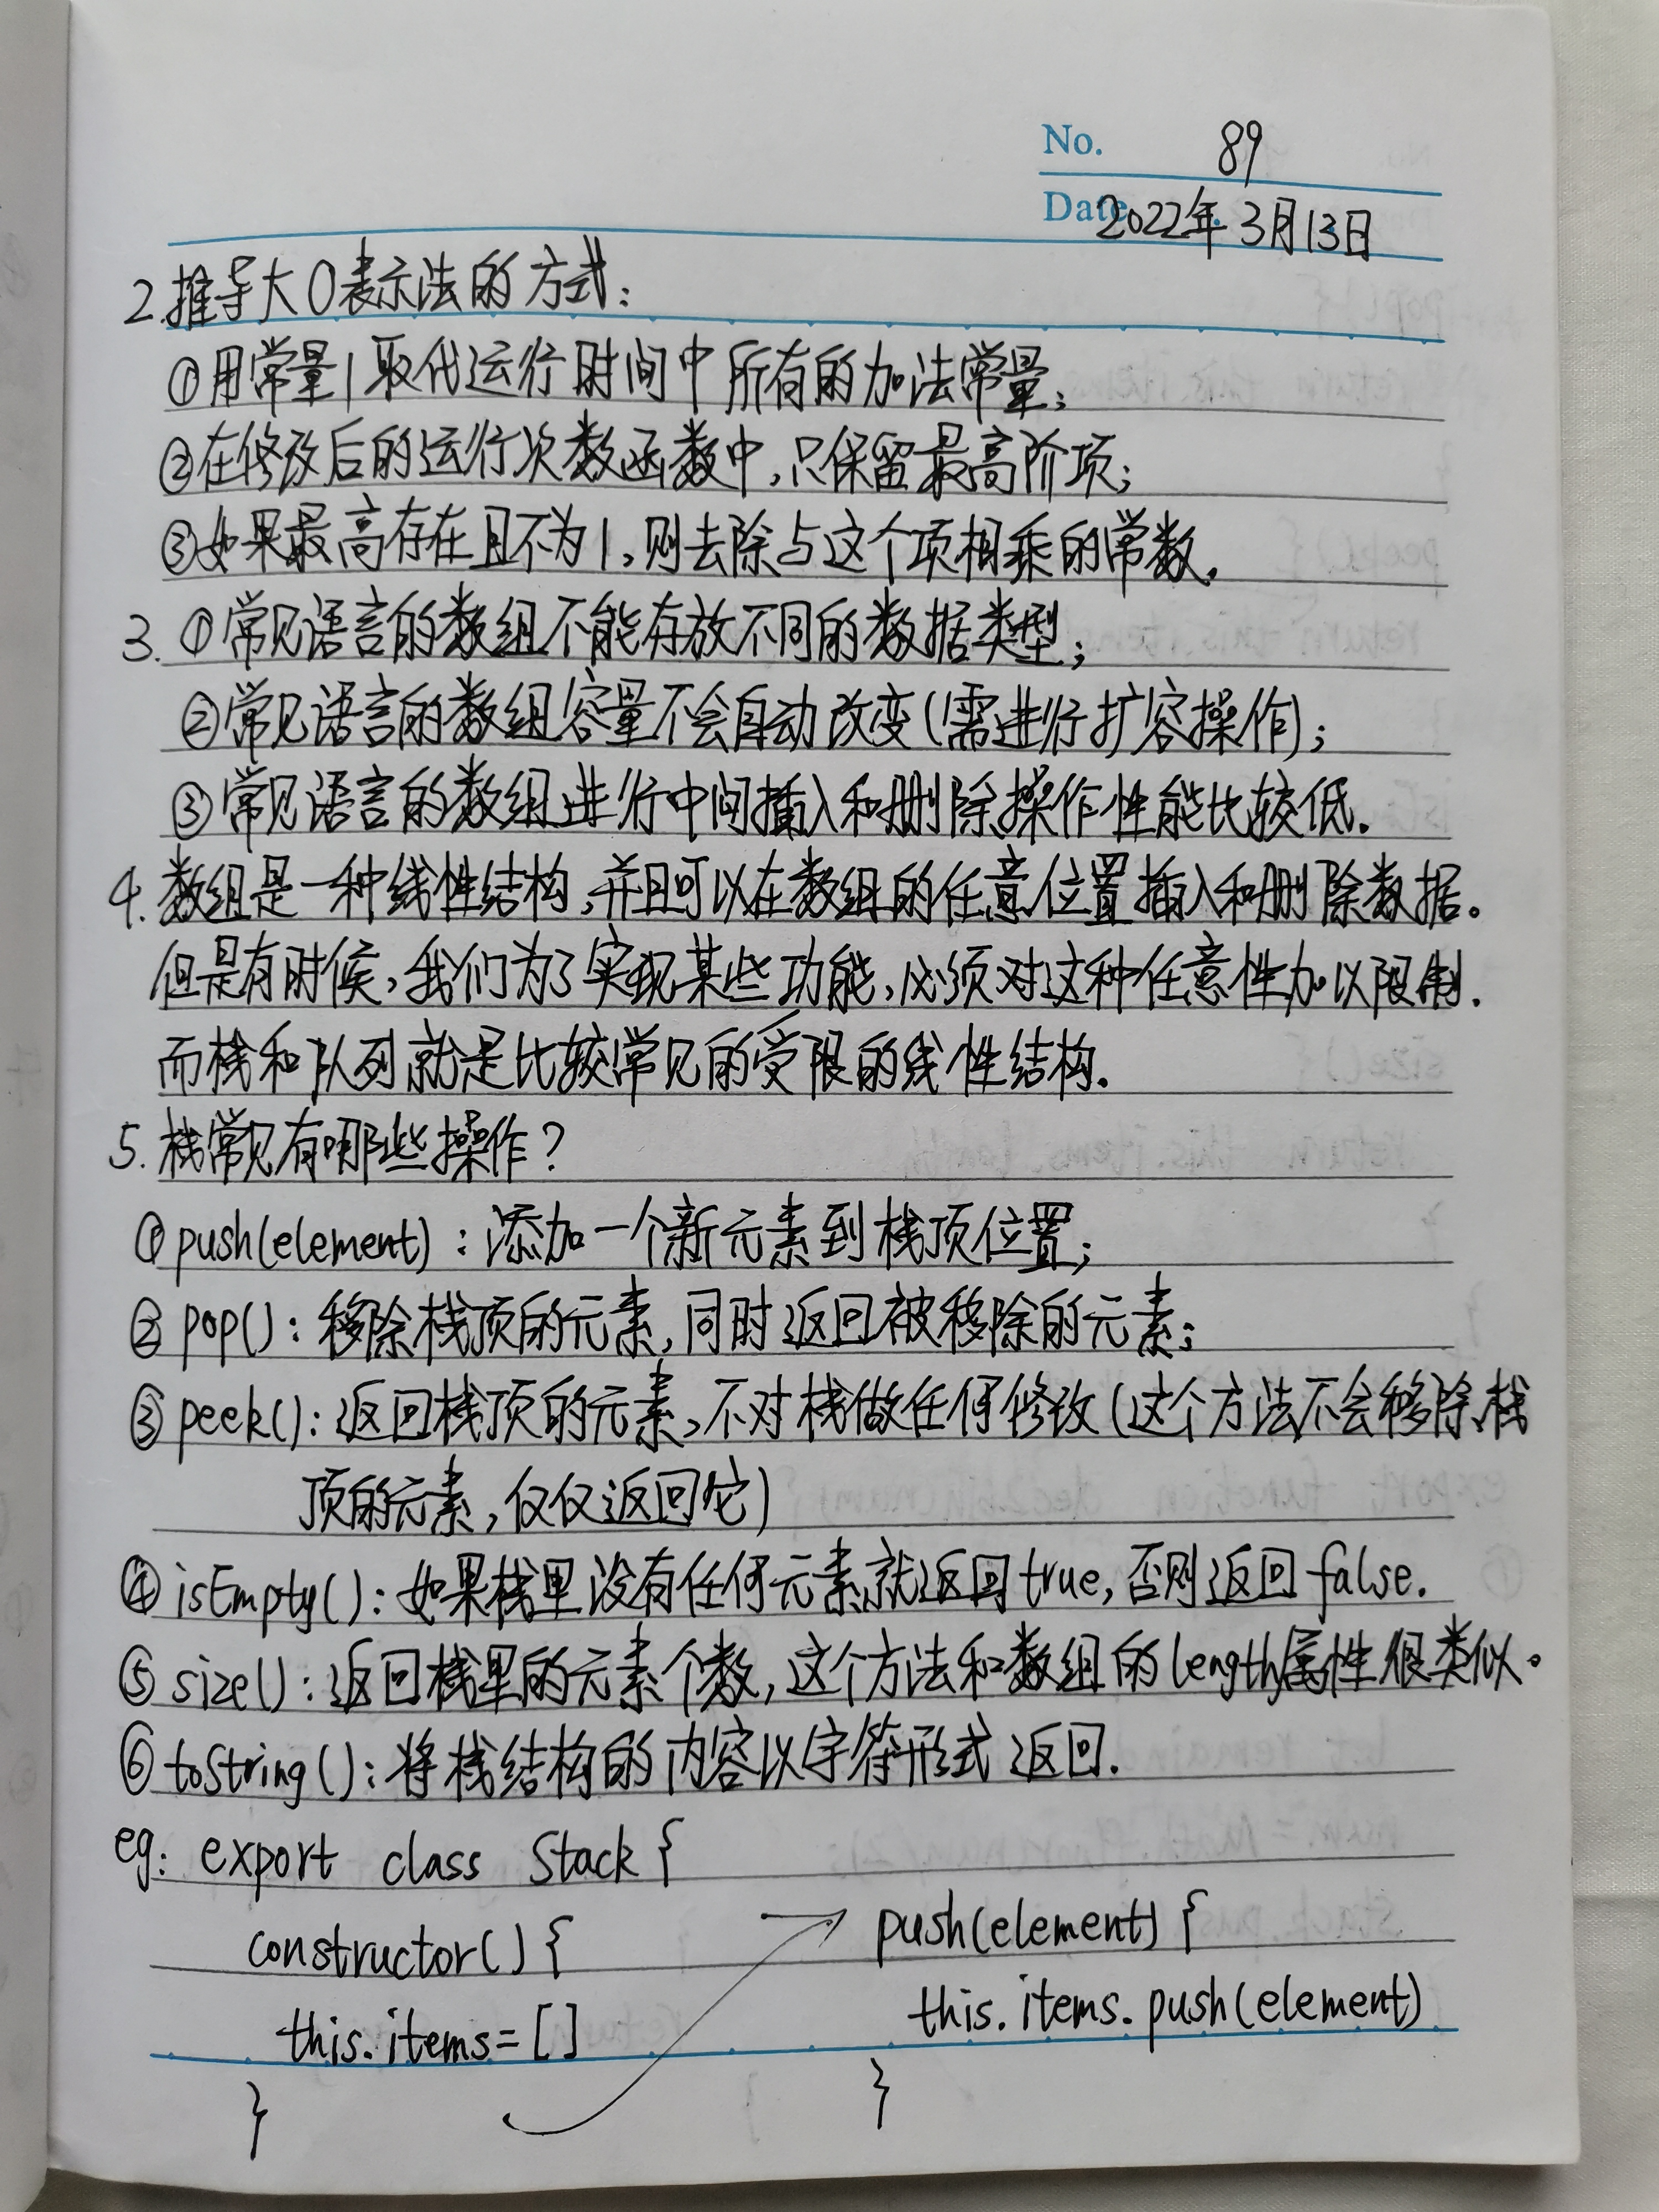 No. 89
Date 2022年3月13日
2.推导大O表示法的方式:
①用常量1取代运行时间中所有的加法常量;
②在修改后的运行次数函数中,只保留最高阶项;
③如果最高存在且不为1,则去除与这个项相乘的常数.
3. ①常见语言的数组不能存放不同的数据类型;
②常见语言的数组容量不会自动改变(需进行扩容操作);
③常见语言的数组进行中间插入和删除操作性能比较低.
4. 数组是一种线性结构,并且可以在数组的任意位置插入和删除数据。
但是有时候,我们为了实现某些功能,必须对这种任意性加以限制.
而栈和队列就是比较常见的受限的线性结构.
5. 栈常见有哪些操作?
①push(element):添加一个新元素到栈顶位置;
②pop():移除栈顶的元素,同时返回被移除的元素;
③peek():返回栈顶的元素,不对栈做任何修改(这个方法不会移除栈
顶的元素,仅仅返回它)
④isEmpty():如果栈里没有任何元素就返回true,否则返回false.
⑤size():返回栈里的元素个数,这个方法和数组的length属性很类似。
⑥toString():将栈结构的内容以字符形式返回.
eg: export class Stack {
constructor() {
this.items = []
}
push(element) {
this.items.push(element)
}